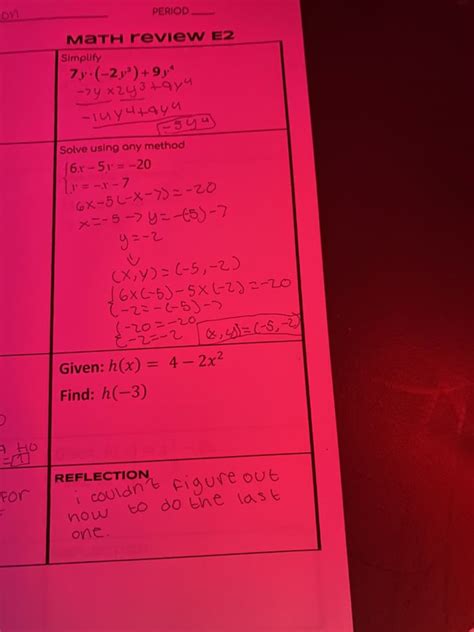 on
PERIOD
MATH review E2
Simplify
7y·(−2y³)+9y⁴
-7y x 2y3 +9y4
-14y4+9y4
-5y4
Solve using any method
{6x − 5y = −20
y = −x − 7
6x-5(-x-7)=-20
x=-5 → y=-(-5)-7
y=-2
↓
(x,y)=(-5,-2)
{6x(-5)-5x(-2)=-20
{-2=-(-5)-7
{-20=-20
{-2=-2
(x,y)=(-5,-2)
Given: h(x) = 4 − 2x²
Find: h(−3)
HO
REFLECTION
i couldn't figure out
how to do the last
one.
For